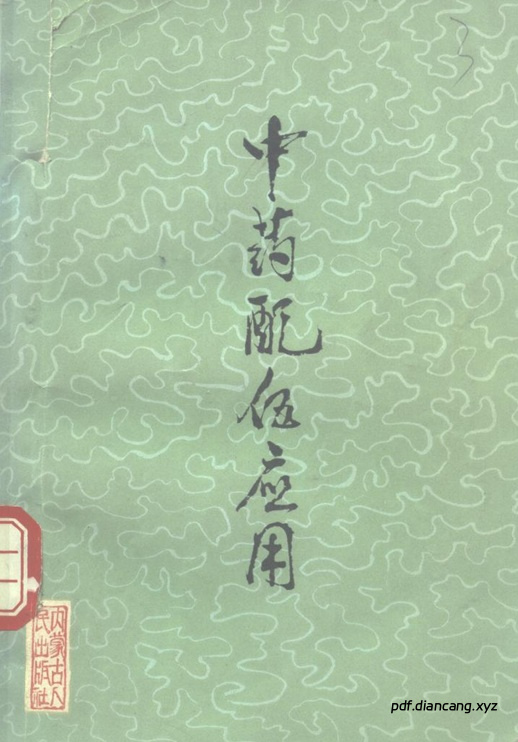 中药配伍应用
内蒙古人
民出版社
pdf.diancang.xyz